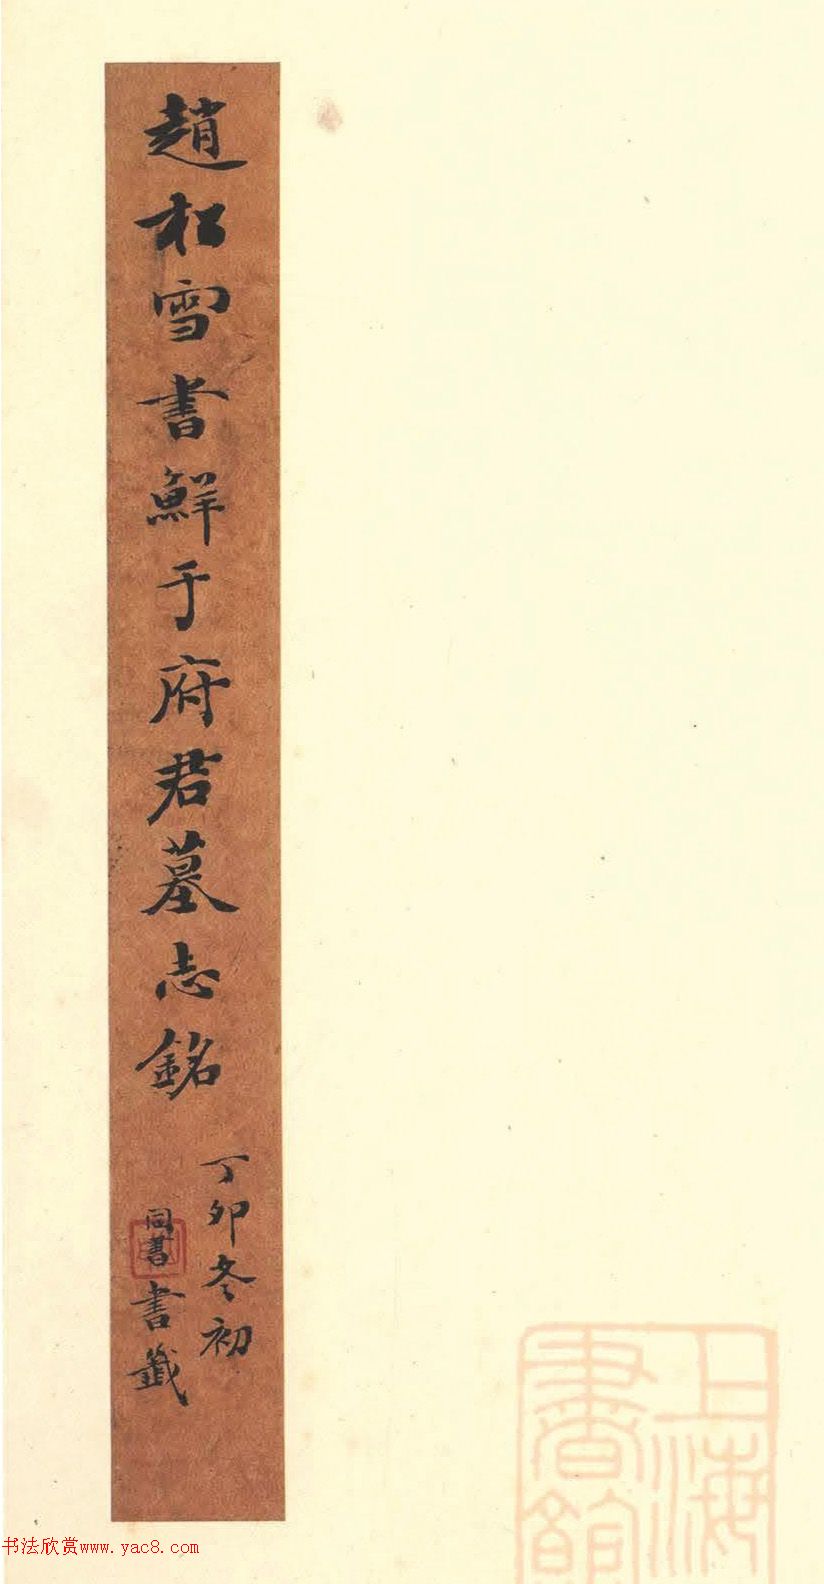 趙松雪書鮮于府君墓志銘
丁卯冬初
同書書籤
上海
書館
书法欣赏www.yac8.com